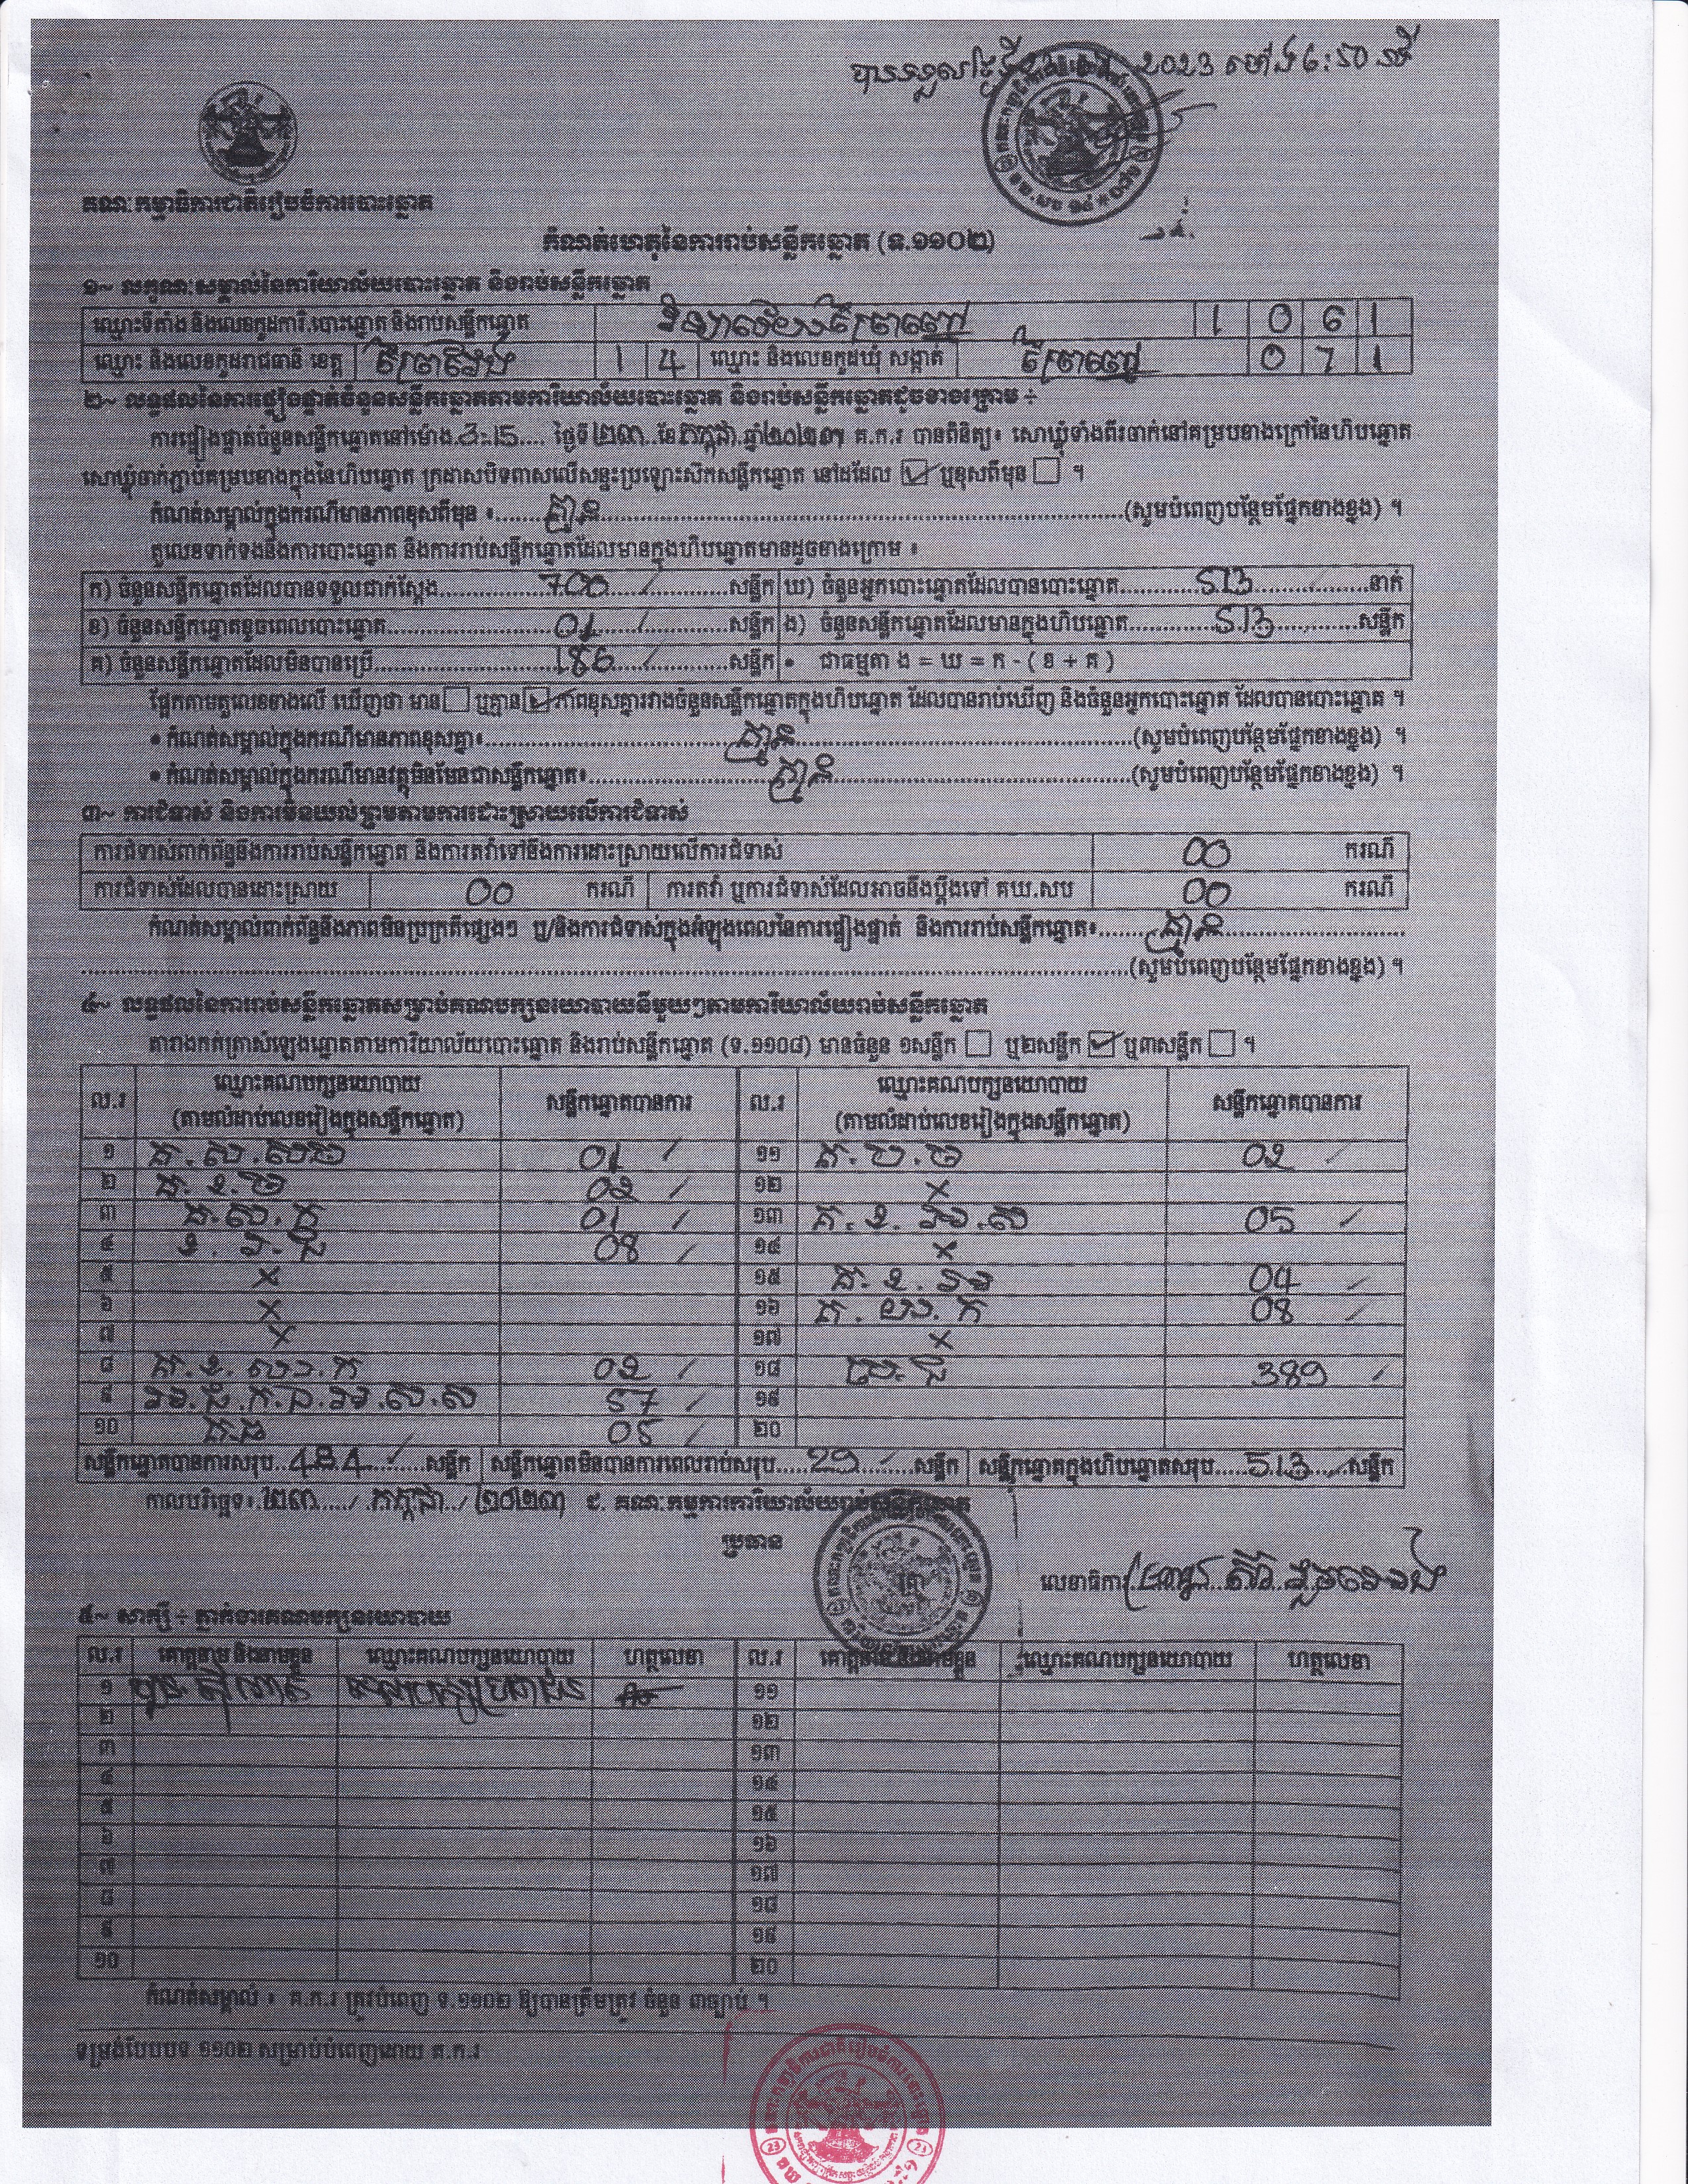 បានទទួលថ្ងៃទី 2023 ម៉ោង 6:50 នាទី
គណៈកម្មាធិការជាតិរៀបចំការបោះឆ្នោត
កំណត់ហេតុនៃការរាប់សន្លឹកឆ្នោត (ទ.១១០២)
១~ លក្ខណៈសម្គាល់នៃការិយាល័យបោះឆ្នោត និងរាប់សន្លឹកឆ្នោត
ឈ្មោះទីតាំង និងលេខកូដការិ.បោះឆ្នោត និងរាប់សន្លឹកឆ្នោត 1 0 6 1
ឈ្មោះ និងលេខកូដរាជធានី ខេត្ត ព្រៃវែង 1 4 ឈ្មោះ និងលេខកូដឃុំ សង្កាត់ 0 7 1
២~ លទ្ធផលនៃការផ្ទៀងផ្ទាត់ចំនួនសន្លឹកឆ្នោតតាមការិយាល័យបោះឆ្នោត និងរាប់សន្លឹកឆ្នោតដូចខាងក្រោម ÷
ការផ្ទៀងផ្ទាត់ចំនួនសន្លឹកឆ្នោតនៅម៉ោង 3:15 ថ្ងៃទី ២៣ ខែ កក្កដា ឆ្នាំ ២០២៣ គ.ក.រ បានពិនិត្យ៖ សោឃ្លុំទាំងពីរចាក់នៅគម្របខាងក្រៅនៃហិបឆ្នោត
សោឃ្លុំចាក់ភ្ជាប់គម្របខាងក្នុងនៃហិបឆ្នោត ក្រដាសបិទពាសលើសន្ទះប្រឡោះសិកសន្លឹកឆ្នោត នៅដដែល ☑ ឬខុសពីមុន ☐ ។
កំណត់សម្គាល់ក្នុងករណីមានភាពខុសពីមុន ៖ គ្មាន (សូមបំពេញបន្ថែមផ្នែកខាងខ្នង) ។
តួលេខទាក់ទងនឹងការបោះឆ្នោត និងការរាប់សន្លឹកឆ្នោតដែលមានក្នុងហិបឆ្នោតមានដូចខាងក្រោម ៖
ក) ចំនួនសន្លឹកឆ្នោតដែលបានទទួលជាក់ស្តែង 700 សន្លឹក ឃ) ចំនួនអ្នកបោះឆ្នោតដែលបានបោះឆ្នោត 513 នាក់
ខ) ចំនួនសន្លឹកឆ្នោតខូចពេលបោះឆ្នោត 01 សន្លឹក ង) ចំនួនសន្លឹកឆ្នោតដែលមានក្នុងហិបឆ្នោត 513 សន្លឹក
គ) ចំនួនសន្លឹកឆ្នោតដែលមិនបានប្រើ 186 សន្លឹក • ជាធម្មតា ង = ឃ = ក - ( ខ + គ )
ផ្អែកតាមតួលេខខាងលើ ឃើញថា មាន ☐ ឬគ្មាន ☑ ភាពខុសគ្នារវាងចំនួនសន្លឹកឆ្នោតក្នុងហិបឆ្នោត ដែលបានរាប់ឃើញ និងចំនួនអ្នកបោះឆ្នោត ដែលបានបោះឆ្នោត ។
• កំណត់សម្គាល់ក្នុងករណីមានភាពខុសគ្នា៖ គ្មាន (សូមបំពេញបន្ថែមផ្នែកខាងខ្នង) ។
• កំណត់សម្គាល់ក្នុងករណីមានវត្ថុមិនមែនជាសន្លឹកឆ្នោត៖ គ្មាន (សូមបំពេញបន្ថែមផ្នែកខាងខ្នង) ។
៣~ ការជំទាស់ និងការមិនយល់ព្រមតាមការដោះស្រាយលើការជំទាស់
ការជំទាស់ពាក់ព័ន្ធនឹងការរាប់សន្លឹកឆ្នោត និងការតវ៉ាទៅនឹងការដោះស្រាយលើការជំទាស់ 00 ករណី
ការជំទាស់ដែលបានដោះស្រាយ 00 ករណី ការតវ៉ា ឬការជំទាស់ដែលអាចនឹងប្តឹងទៅ គឃ.សប 00 ករណី
កំណត់សម្គាល់ពាក់ព័ន្ធនឹងភាពមិនប្រក្រតីផ្សេងៗ ឬ/និងការជំទាស់ក្នុងអំឡុងពេលនៃការផ្ទៀងផ្ទាត់ និងការរាប់សន្លឹកឆ្នោត៖ គ្មាន
(សូមបំពេញបន្ថែមផ្នែកខាងខ្នង) ។
៤~ លទ្ធផលនៃការរាប់សន្លឹកឆ្នោតសម្រាប់គណបក្សនយោបាយនីមួយៗតាមការិយាល័យរាប់សន្លឹកឆ្នោត
តារាងកត់ត្រាសំឡេងឆ្នោតតាមការិយាល័យបោះឆ្នោត និងរាប់សន្លឹកឆ្នោត (ទ.១១០៨) មានចំនួន ១សន្លឹក ☐ ឬ២សន្លឹក ☑ ឬ៣សន្លឹក ☐ ។
ល.រ ឈ្មោះគណបក្សនយោបាយ (តាមលំដាប់លេខរៀងក្នុងសន្លឹកឆ្នោត) សន្លឹកឆ្នោតបានការ ល.រ ឈ្មោះគណបក្សនយោបាយ (តាមលំដាប់លេខរៀងក្នុងសន្លឹកឆ្នោត) សន្លឹកឆ្នោតបានការ
១ 01 ១១ 02
២ គ.ខ.ច 02 ១២ ×
៣ 01 ១៣ 05
៤ 08 ១៤ ×
៥ × ១៥ 04
៦ × ១៦ 08
៧ × ១៧ ×
៨ 02 ១៨ 389
៩ 57 ១៩
១០ 05 ២០
សន្លឹកឆ្នោតបានការសរុប 484 សន្លឹក សន្លឹកឆ្នោតមិនបានការពេលរាប់សរុប 29 សន្លឹក សន្លឹកឆ្នោតក្នុងហិបឆ្នោតសរុប 513 សន្លឹក
កាលបរិច្ឆេទ៖ ២៣ / កក្កដា / ២០២៣ ជ. គណៈកម្មការការិយាល័យរាប់សន្លឹកឆ្នោត
ប្រធាន
លេខាធិការ
៥~ សាក្សី ÷ ភ្នាក់ងារគណបក្សនយោបាយ
ល.រ គោត្តនាម និងនាមខ្លួន ឈ្មោះគណបក្សនយោបាយ ហត្ថលេខា ល.រ គោត្តនាម និងនាមខ្លួន ឈ្មោះគណបក្សនយោបាយ ហត្ថលេខា
១ គណបក្សប្រជាជន ១១
២ ១២
៣ ១៣
៤ ១៤
៥ ១៥
៦ ១៦
៧ ១៧
៨ ១៨
៩ ១៩
១០ ២០
កំណត់សម្គាល់ ៖ គ.ក.រ ត្រូវបំពេញ ទ.១១០២ ឱ្យបានត្រឹមត្រូវ ចំនួន ៣ច្បាប់ ។
ទម្រង់បែបបទ ១១០២ សម្រាប់បំពេញដោយ គ.ក.រ